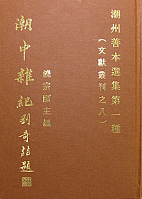 潮州善本選集第一種
(文献叢刊之八)
饒宗頤主編
潮中雜紀